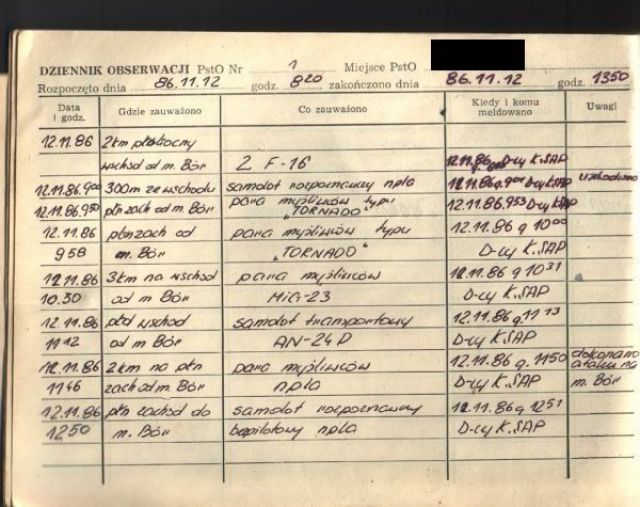 DZIENNIK OBSERWACJI PstO Nr 1 Miejsce PstO
Rozpoczęto dnia 86.11.12 godz. 8 20 zakończono dnia 86.11.12 godz. 1350
Data i godz. Gdzie zauważono Co zauważono Kiedy i komu meldowano Uwagi
12.11.86 2km północny
wschód od m. Bór 2 F-16 12.11.86 D-cy K.SAP
12.11.86.9 00 300m ze wschodu samolot rozpoznawczy npla 12.11.86 g. 9 01 D-cy K.SAP
12.11.86.9 50 płn zach od m. Bór para myśliwców typu „TORNADO" 12.11.86.9 53 D-cy K.SAP
12.11.86 płn zach od para myśliwców typu 12.11.86 g 10 00
958 m. Bór „TORNADO" D-cy K.SAP
12.11.86 3km na wschód para myśliwców 12.11.86 g 10 31
10.30 od m Bór MiG-23 D-cy K.SAP
12.11.86 płd wschód samolot transportowy 12.11.86 g. 11 13
11 12 od m Bór AN-24 D D-cy K.SAP
12.11.86 2km na płn para myśliwców 12.11.86 g. 1150 dokonano ataku na
1146 zach od m. Bór npla D-cy K.SAP m. Bór
12.11.86 płn zachód do samolot rozpoznawczy 12.11.86 g 1251
1250 m. Bór bezpilotowy npla D-cy K.SAP